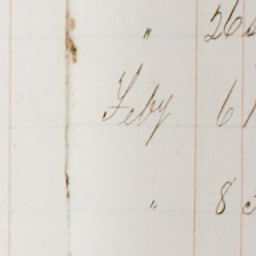 " 26
Feby 6
" 8